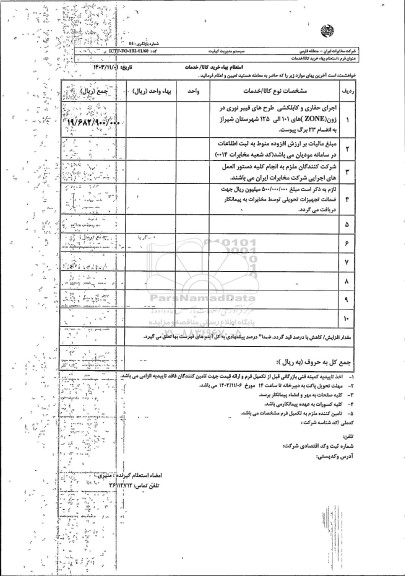 شرکت مخابرات ایران - منطقه فارس
سیستم مدیریت کیفیت
عنوان فرم : استعلام بهاء خرید کالا/خدمات
استعلام بهاء خرید کالا/ خدمات
خواهشمند است آخرین بهای موارد زیر را که حاضر به معامله هستید تعیین و اعلام فرمائید.
ردیف مشخصات نوع کالا/خدمات واحد بهاء واحد (ریال) جمع (ریال)
۱ اجرای حفاری و کابلکشی طرح های فیبر نوری در
زون(ZONE )های ۱۰۱ الی ۱۲۵ شهرستان شیراز
به انضمام ۲۳ برگ پیوست.
۱۹/۶۸۲/۹۰۰/۰۰۰
۲ مبلغ مالیات بر ارزش افزوده منوط به ثبت اطلاعات
در سامانه مودیان می باشد(کد شعبه مخابرات ۰۰۱۴)
۳ شرکت کنندگان ملزم به انجام کلیه دستور العمل
های اجرایی شرکت مخابرات ایران می باشند.
۴ لازم به ذکر است مبلغ ۵۰۰/۰۰۰/۰۰۰ میلیون ریال جهت
ضمانت تجهیزات تحویلی توسط مخابرات به پیمانکار
دریافت می گردد.
۵
۶
۷
۸
۹
۱۰
ParsNamadData
پایگاه اطلاع رسانی مناقصه و مزایده
مقدار افزایش/ کاهش یا درصد قید گردد. ضمنا" درصد پیشنهادی به کل آیتم های فهرست بها تعلق می گیرد.
جمع کل به حروف (به ریال):
۱- اخذ تاییدیه کمیته فنی بازرگانی قبل از تکمیل فرم و ارائه قیمت جهت تامین کنندگان فاقد تاییدیه الزامی می باشد.
۲- مهلت تحویل پاکت به دبیرخانه تا ساعت ۱۴ مورخ ۱۴۰۳/۱۱/۰۶ می باشد.
۳- کلیه صفحات به مهر و امضاء پیمانکار برسد.
۴- کلیه کسورات به عهده پیمانکار می باشد.
۵- تامین کننده ملزم به تکمیل فرم مشخصات می باشد.
کدملی /کد شناسه شرکت :
تلفن:
شماره ثبت وکد اقتصادی شرکت:
آدرس وکدپستی:
امضاء استعلام گیرنده :
تلفن تماس: